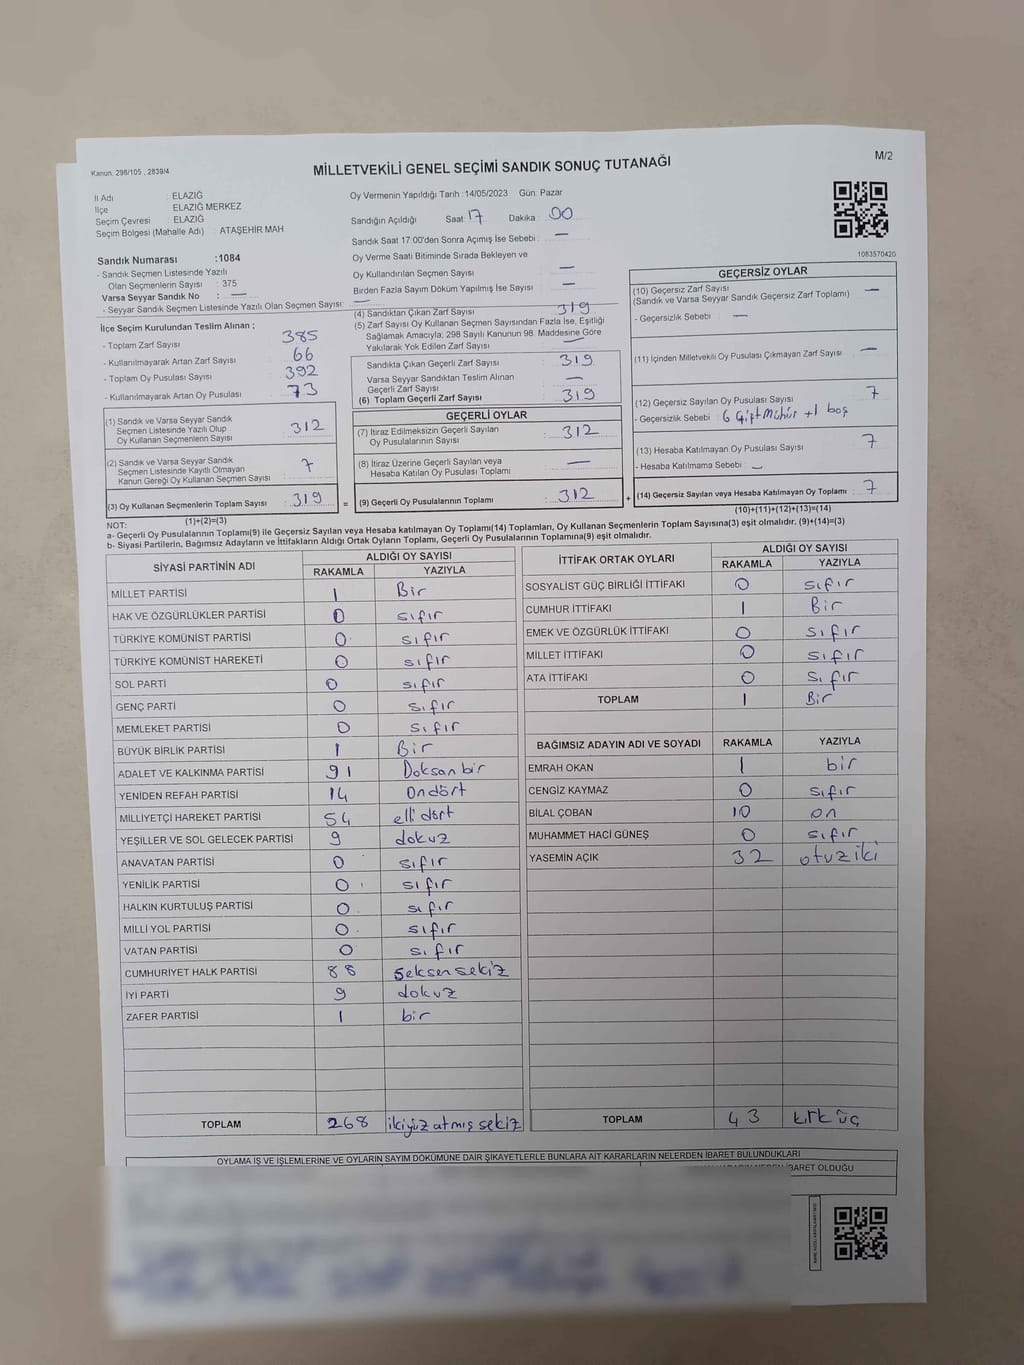 Kanun: 298/105 , 2839/4
MİLLETVEKİLİ GENEL SEÇİMİ SANDIK SONUÇ TUTANAĞI
M/2
İl Adı : ELAZIĞ
İlçe : ELAZIĞ MERKEZ
Seçim Çevresi : ELAZIĞ
Seçim Bölgesi (Mahalle Adı) : ATAŞEHİR MAH
Sandık Numarası :1084
- Sandık Seçmen Listesinde Yazılı
Olan Seçmenlerin Sayısı : 375
Varsa Seyyar Sandık No : —
- Seyyar Sandık Seçmen Listesinde Yazılı Olan Seçmen Sayısı: —
İlçe Seçim Kurulundan Teslim Alınan ;
- Toplam Zarf Sayısı : 385
- Kullanılmayarak Artan Zarf Sayısı : 66
- Toplam Oy Pusulası Sayısı : 392
- Kullanılmayarak Artan Oy Pusulası : 73
(1) Sandık ve Varsa Seyyar Sandık
Seçmen Listesinde Yazılı Olup
Oy Kullanan Seçmenlerin Sayısı : 312
(2) Sandık ve Varsa Seyyar Sandık
Seçmen Listesinde Kayıtlı Olmayan
Kanun Gereği Oy Kullanan Seçmen Sayısı : 7
(3) Oy Kullanan Seçmenlerin Toplam Sayısı : 319
(1)+(2)=(3)
Oy Vermenin Yapıldığı Tarih :14/05/2023 Gün: Pazar
Sandığın Açıldığı Saat: 17 Dakika : 00
Sandık Saat 17:00'den Sonra Açımış İse Sebebi : —
Oy Verme Saati Bitiminde Sırada Bekleyen ve
Oy Kullandırılan Seçmen Sayısı : —
Birden Fazla Sayım Döküm Yapılmış İse Sayısı : —
(4) Sandıktan Çıkan Zarf Sayısı : 319
(5) Zarf Sayısı Oy Kullanan Seçmen Sayısından Fazla İse, Eşitliği
Sağlamak Amacıyla; 298 Sayılı Kanunun 98. Maddesine Göre
Yakılarak Yok Edilen Zarf Sayısı : —
Sandıkta Çıkan Geçerli Zarf Sayısı : 319
Varsa Seyyar Sandıktan Teslim Alınan
Geçerli Zarf Sayısı : —
(6) Toplam Geçerli Zarf Sayısı : 319
GEÇERLİ OYLAR
(7) İtiraz Edilmeksizin Geçerli Sayılan
Oy Pusulalarının Sayısı : 312
(8) İtiraz Üzerine Geçerli Sayılan veya
Hesaba Katılan Oy Pusulası Toplamı : —
= (9) Geçerli Oy Pusulalarının Toplamı : 312 +
1083570420
GEÇERSİZ OYLAR
(10) Geçersiz Zarf Sayısı : —
(Sandık ve Varsa Seyyar Sandık Geçersiz Zarf Toplamı)
- Geçersizlik Sebebi : —
(11) İçinden Milletvekili Oy Pusulası Çıkmayan Zarf Sayısı : —
(12) Geçersiz Sayılan Oy Pusulası Sayısı : 7
- Geçersizlik Sebebi : 6 Çift mühür +1 boş
(13) Hesaba Katılmayan Oy Pusulası Sayısı : 7
- Hesaba Katılmama Sebebi : —
(14) Geçersiz Sayılan veya Hesaba Katılmayan Oy Toplamı : 7
(10)+(11)+(12)+(13)=(14)
NOT:
a- Geçerli Oy Pusulalarının Toplamı(9) ile Geçersiz Sayılan veya Hesaba katılmayan Oy Toplamı(14) Toplamları, Oy Kullanan Seçmenlerin Toplam Sayısına(3) eşit olmalıdır. (9)+(14)=(3)
b- Siyasi Partilerin, Bağımsız Adayların ve İttifakların Aldığı Ortak Oyların Toplamı, Geçerli Oy Pusulalarının Toplamına(9) eşit olmalıdır.
SİYASİ PARTİNİN ADI ALDIĞI OY SAYISI
RAKAMLA YAZIYLA
MİLLET PARTİSİ 1 Bir
HAK VE ÖZGÜRLÜKLER PARTİSİ 0 sıfır
TÜRKİYE KOMÜNİST PARTİSİ 0 sıfır
TÜRKİYE KOMÜNİST HAREKETİ 0 sıfır
SOL PARTİ 0 sıfır
GENÇ PARTİ 0 sıfır
MEMLEKET PARTİSİ 0 sıfır
BÜYÜK BİRLİK PARTİSİ 1 Bir
ADALET VE KALKINMA PARTİSİ 91 Doksan bir
YENİDEN REFAH PARTİSİ 14 Ondört
MİLLİYETÇİ HAREKET PARTİSİ 54 elli dört
YEŞİLLER VE SOL GELECEK PARTİSİ 9 dokuz
ANAVATAN PARTİSİ 0 sıfır
YENİLİK PARTİSİ 0 sıfır
HALKIN KURTULUŞ PARTİSİ 0 sıfır
MİLLİ YOL PARTİSİ 0 sıfır
VATAN PARTİSİ 0 sıfır
CUMHURİYET HALK PARTİSİ 88 Seksen sekiz
İYİ PARTİ 9 dokuz
ZAFER PARTİSİ 1 bir
TOPLAM 268 ikiyüz atmış sekiz
İTTİFAK ORTAK OYLARI ALDIĞI OY SAYISI
RAKAMLA YAZIYLA
SOSYALİST GÜÇ BİRLİĞİ İTTİFAKI 0 sıfır
CUMHUR İTTİFAKI 1 Bir
EMEK VE ÖZGÜRLÜK İTTİFAKI 0 sıfır
MİLLET İTTİFAKI 0 sıfır
ATA İTTİFAKI 0 sıfır
TOPLAM 1 Bir
BAĞIMSIZ ADAYIN ADI VE SOYADI RAKAMLA YAZIYLA
EMRAH OKAN 1 bir
CENGİZ KAYMAZ 0 sıfır
BİLAL ÇOBAN 10 on
MUHAMMET HACİ GÜNEŞ 0 sıfır
YASEMİN AÇIK 32 otuz iki
TOPLAM 43 kırk üç
OYLAMA İŞ VE İŞLEMLERİNE VE OYLARIN SAYIM DÖKÜMÜNE DAİR ŞİKAYETLERLE BUNLARA AİT KARARLARIN NELERDEN İBARET BULUNDUKLARI
İBARET OLDUĞU